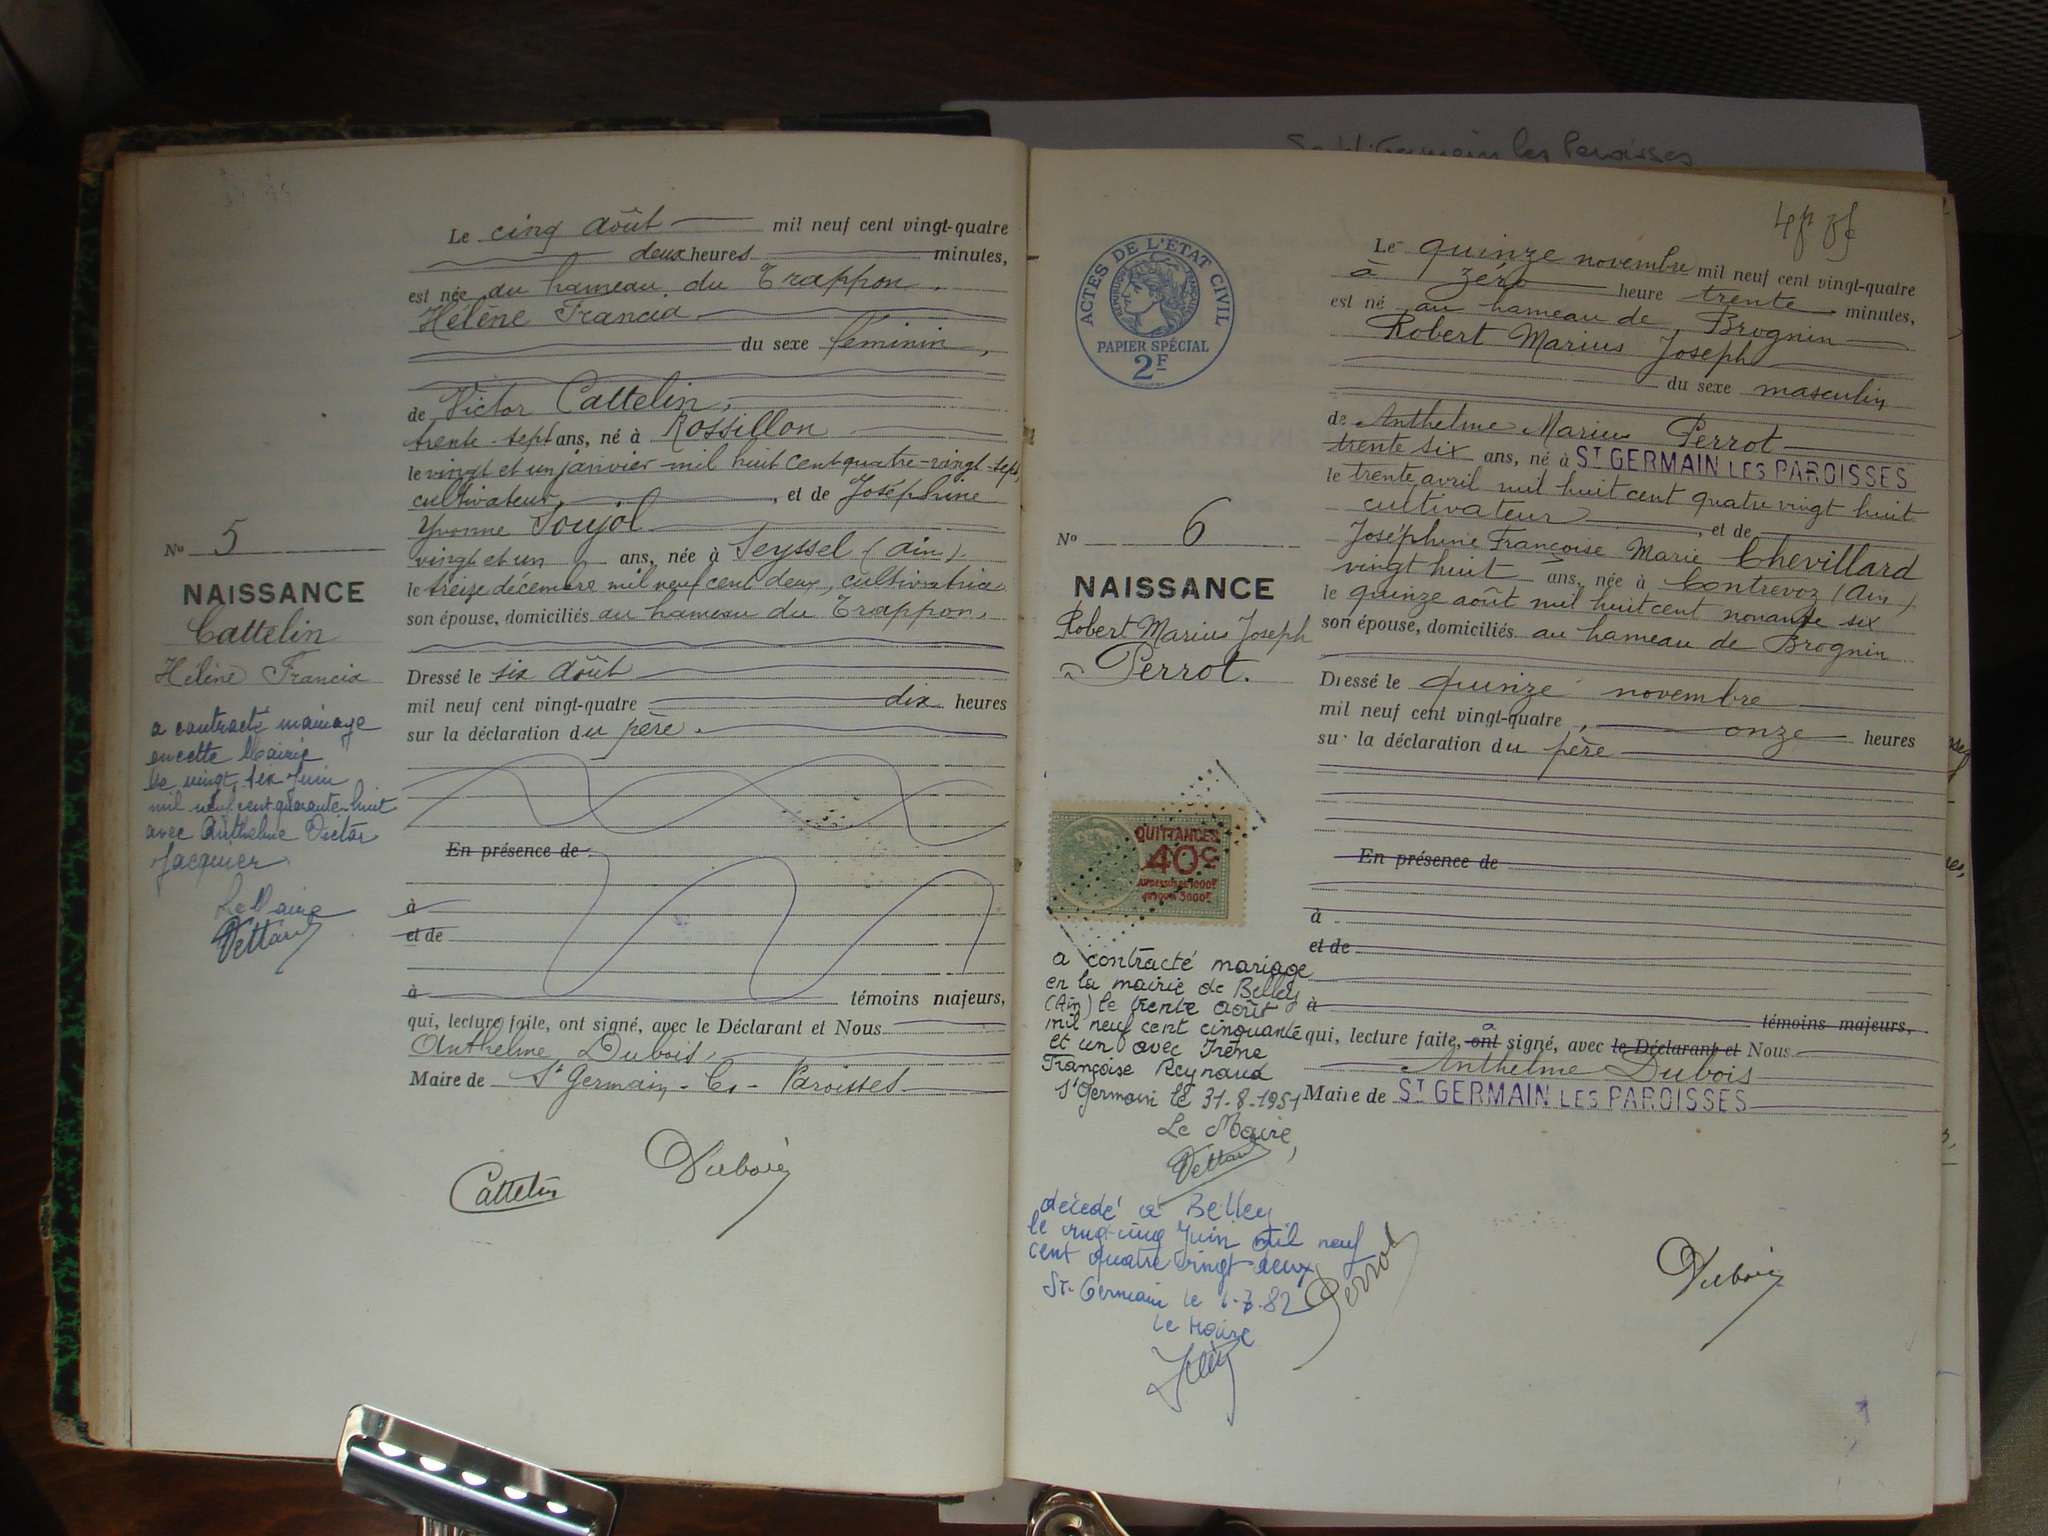 Le cinq Août mil neuf cent vingt-quatre
deux heures minutes,
est née au hameau du Trappon,
Hélène Francia
du sexe féminin,
de Victor Cattelin,
trente-sept ans, né à Rossillon
le vingt et un janvier mil huit cent quatre-vingt-sept,
cultivateur, et de Joséphine
Yvonne Poujol
vingt et un ans, née à Seyssel (Ain)
le treize décembre mil neuf cent deux, cultivatrice
son épouse, domiciliés au hameau du Trappon,
Dressé le six Août
mil neuf cent vingt-quatre dix heures
sur la déclaration du père.
En présence de
à
et de
à témoins majeurs,
qui, lecture faite, ont signé, avec le Déclarant et Nous
Anthelme Dubois,
Maire de St Germain-les-Paroisses
Cattelin
Dubois
No 5
NAISSANCE
Cattelin
Hélène Francia
a contracté mariage
en cette Mairie
le vingt six Juin
mil neuf cent quarante-huit
avec Anthelme Victor
Jacquier
Le Maire
Vettard
St Germain les Paroisses
ACTES DE L'ÉTAT CIVIL
PAPIER SPÉCIAL
2F
Le quinze novembre mil neuf cent vingt-quatre
à zéro heure trente minutes,
est né au hameau de Brognin
Robert Marius Joseph
du sexe masculin
de Anthelme Marius Perrot
trente six ans, né à ST GERMAIN LES PAROISSES
le trente avril mil huit cent quatre vingt huit
cultivateur, et de
Joséphine Françoise Marie Chevillard
vingt huit ans, née à Contrevoz (Ain)
le quinze août mil huit cent nonante six
son épouse, domiciliés au hameau de Brognin
Dressé le quinze novembre
mil neuf cent vingt-quatre, onze heures
sur la déclaration du père
En présence de
à
et de
à témoins majeurs,
qui, lecture faite, ont a signé, avec le Déclarant et Nous
Anthelme Dubois
Maire de ST GERMAIN LES PAROISSES
Dubois
No 6
NAISSANCE
Robert Marius Joseph
Perrot.
QUITTANCES
40c
a contracté mariage
en la mairie de Belley
(Ain) le trente août
mil neuf cent cinquante
et un avec Irène
Françoise Reynaud
St Germain le 31-8-1951
Le Maire,
Vettard
décédé à Belley
le vingt-cinq Juin mil neuf
cent quatre vingt deux
St-Germain le 1-7-82
le Maire
Perrot